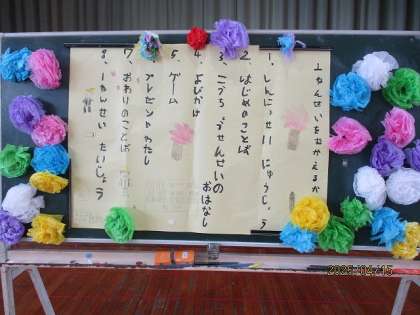 1ねんせいをむかえるか
1. しんにゅうせい にゅうじょう
2. はじめのことば
3. こうちょうせんせいの
おはなし
4. よびかけ
5. ゲーム
プレゼントわたし
7. おわりのことば
8. 1ねんせい たいじょう
2025/04/15